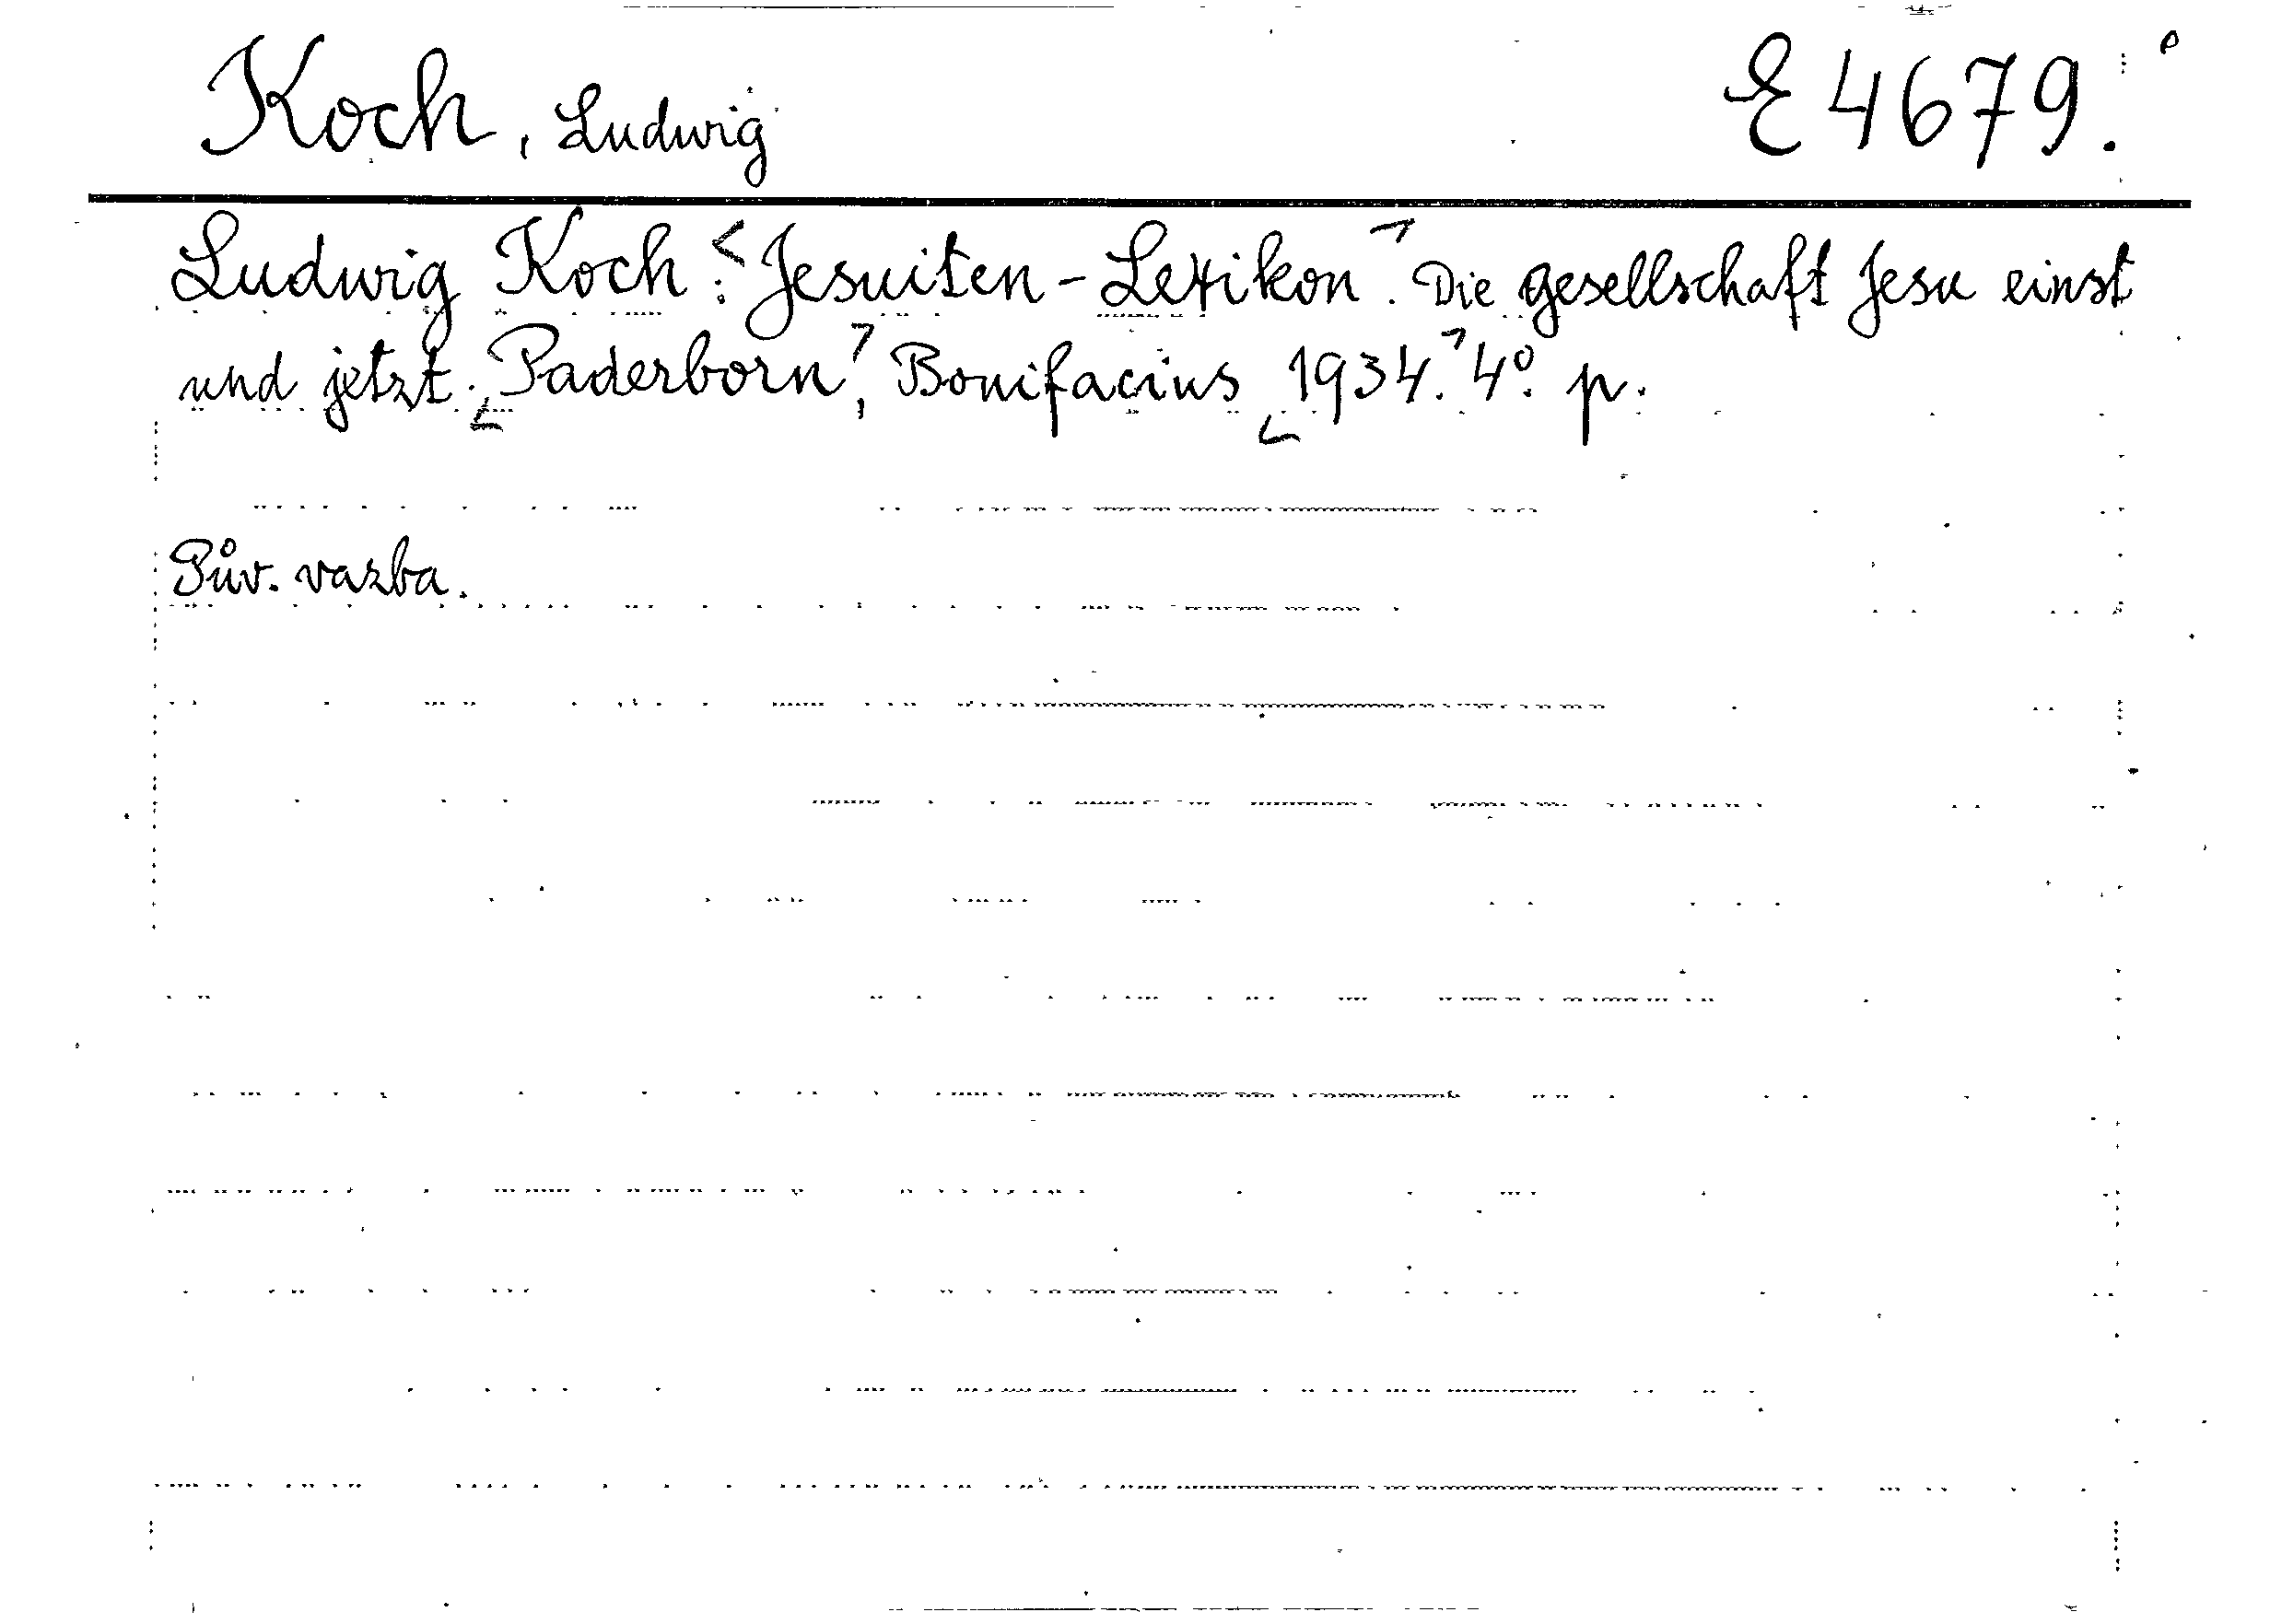 Koch, Ludwig E 4679.
Ludwig Koch: Jesuiten-Lexikon. Die Gesellschaft Jesu einst
und jetzt. Paderborn, Bonifacius 1934. 4º. p.
Pův. vazba.